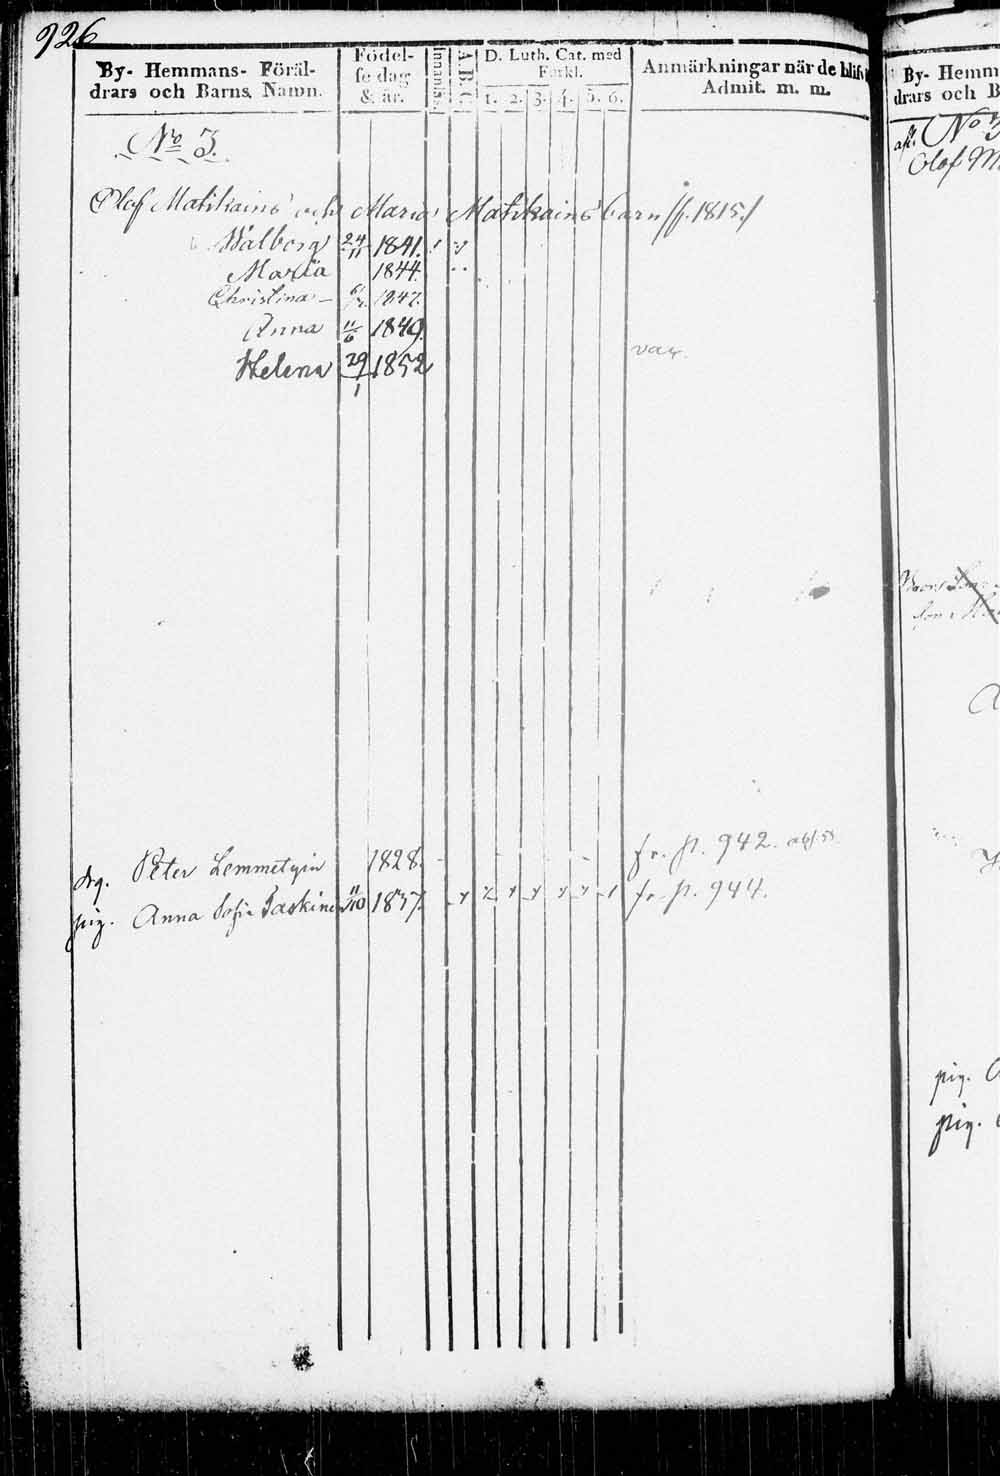 926
By- Hemmans- Föräl-
drars och Barns Namn.
Födel-
se dag
& år.
Innanläs.
A B C
D. Luth. Cat. med
Förkl.
1. 2. 3. 4. 5. 6.
Anmärkningar när de blifv
Admit. m. m.
No 3.
Olof Matikains och Maria Matikains barn /p. 1815./
Walborg 24/11 1841.
Maria 1844.
Christina 1847.
Anna 11/6 1849.
Helena 29/1 1852
vac.
drg. Peter Lemmetyin 1828. fr. p. 942.
pig. Anna Sofia Paskine 11/10 1837. fr. p. 944.
By- Hemm
drars och B
No 3
Olof M
pig.
pig.